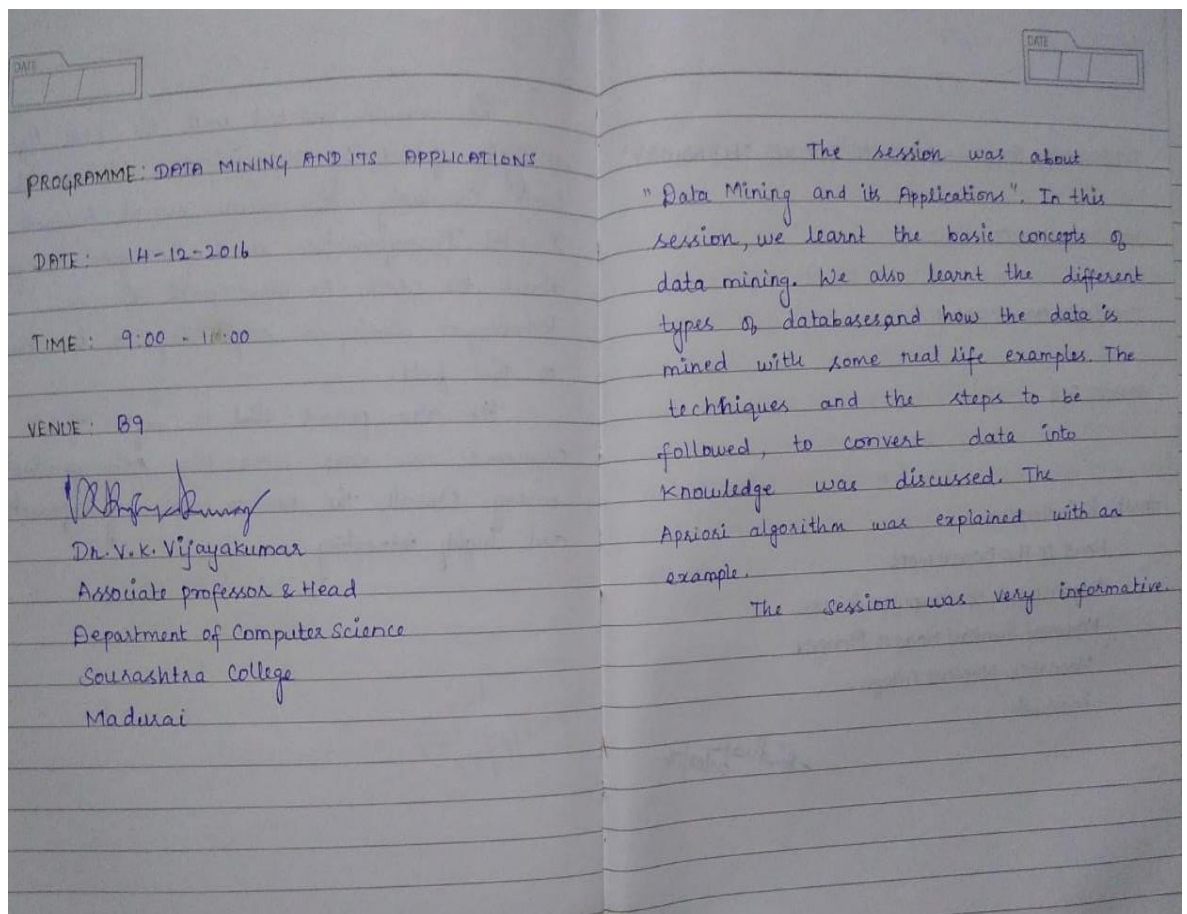 DATE
PROGRAMME: DATA MINING AND ITS APPLICATIONS
DATE: 14-12-2016
TIME: 9:00 - 11:00
VENUE: B9
Dr. V.K. Vijayakumar
Associate professor & Head
Department of Computer Science
Sourashtra College
Madurai
DATE
The session was about
"Data Mining and its Applications". In this
session, we learnt the basic concepts of
data mining. We also learnt the different
types of databases,and how the data is
mined with some real life examples. The
techniques and the steps to be
followed, to convert data into
Knowledge was discussed. The
Apriori algorithm was explained with an
example.
The session was very informative.